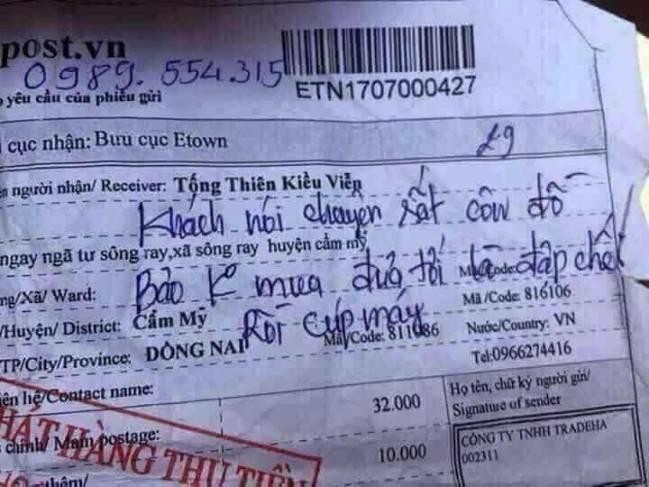 post.vn
0989.554.315
yêu cầu của phiếu gửi
ETN1707000427
cục nhận: Bưu cục Etown
29
người nhận/ Receiver: Tống Thiên Kiều Viễn
Khách nói chuyện rất côn đồ
ngay ngã tư sông ray,xã sông ray huyện cẩm mỹ
Bảo k mua đưa tới là đập chết
/Xã/ Ward:
Code:
Mã /Code: 816106
Rồi cúp máy
/Huyện/ District: Cẩm Mỹ
Mã/Code: 811086
Nước/Country: VN
TP/City/Province: ĐỒNG NAI
Tel:0966274416
hệ/Contact name:
32.000
Họ tên, chữ ký người gửi/
Signature of sender
chính/ Main postage:
10.000
CÔNG TY TNHH TRADEHA
002311
PHÁT HÀNG THU TIỀN
thêm/